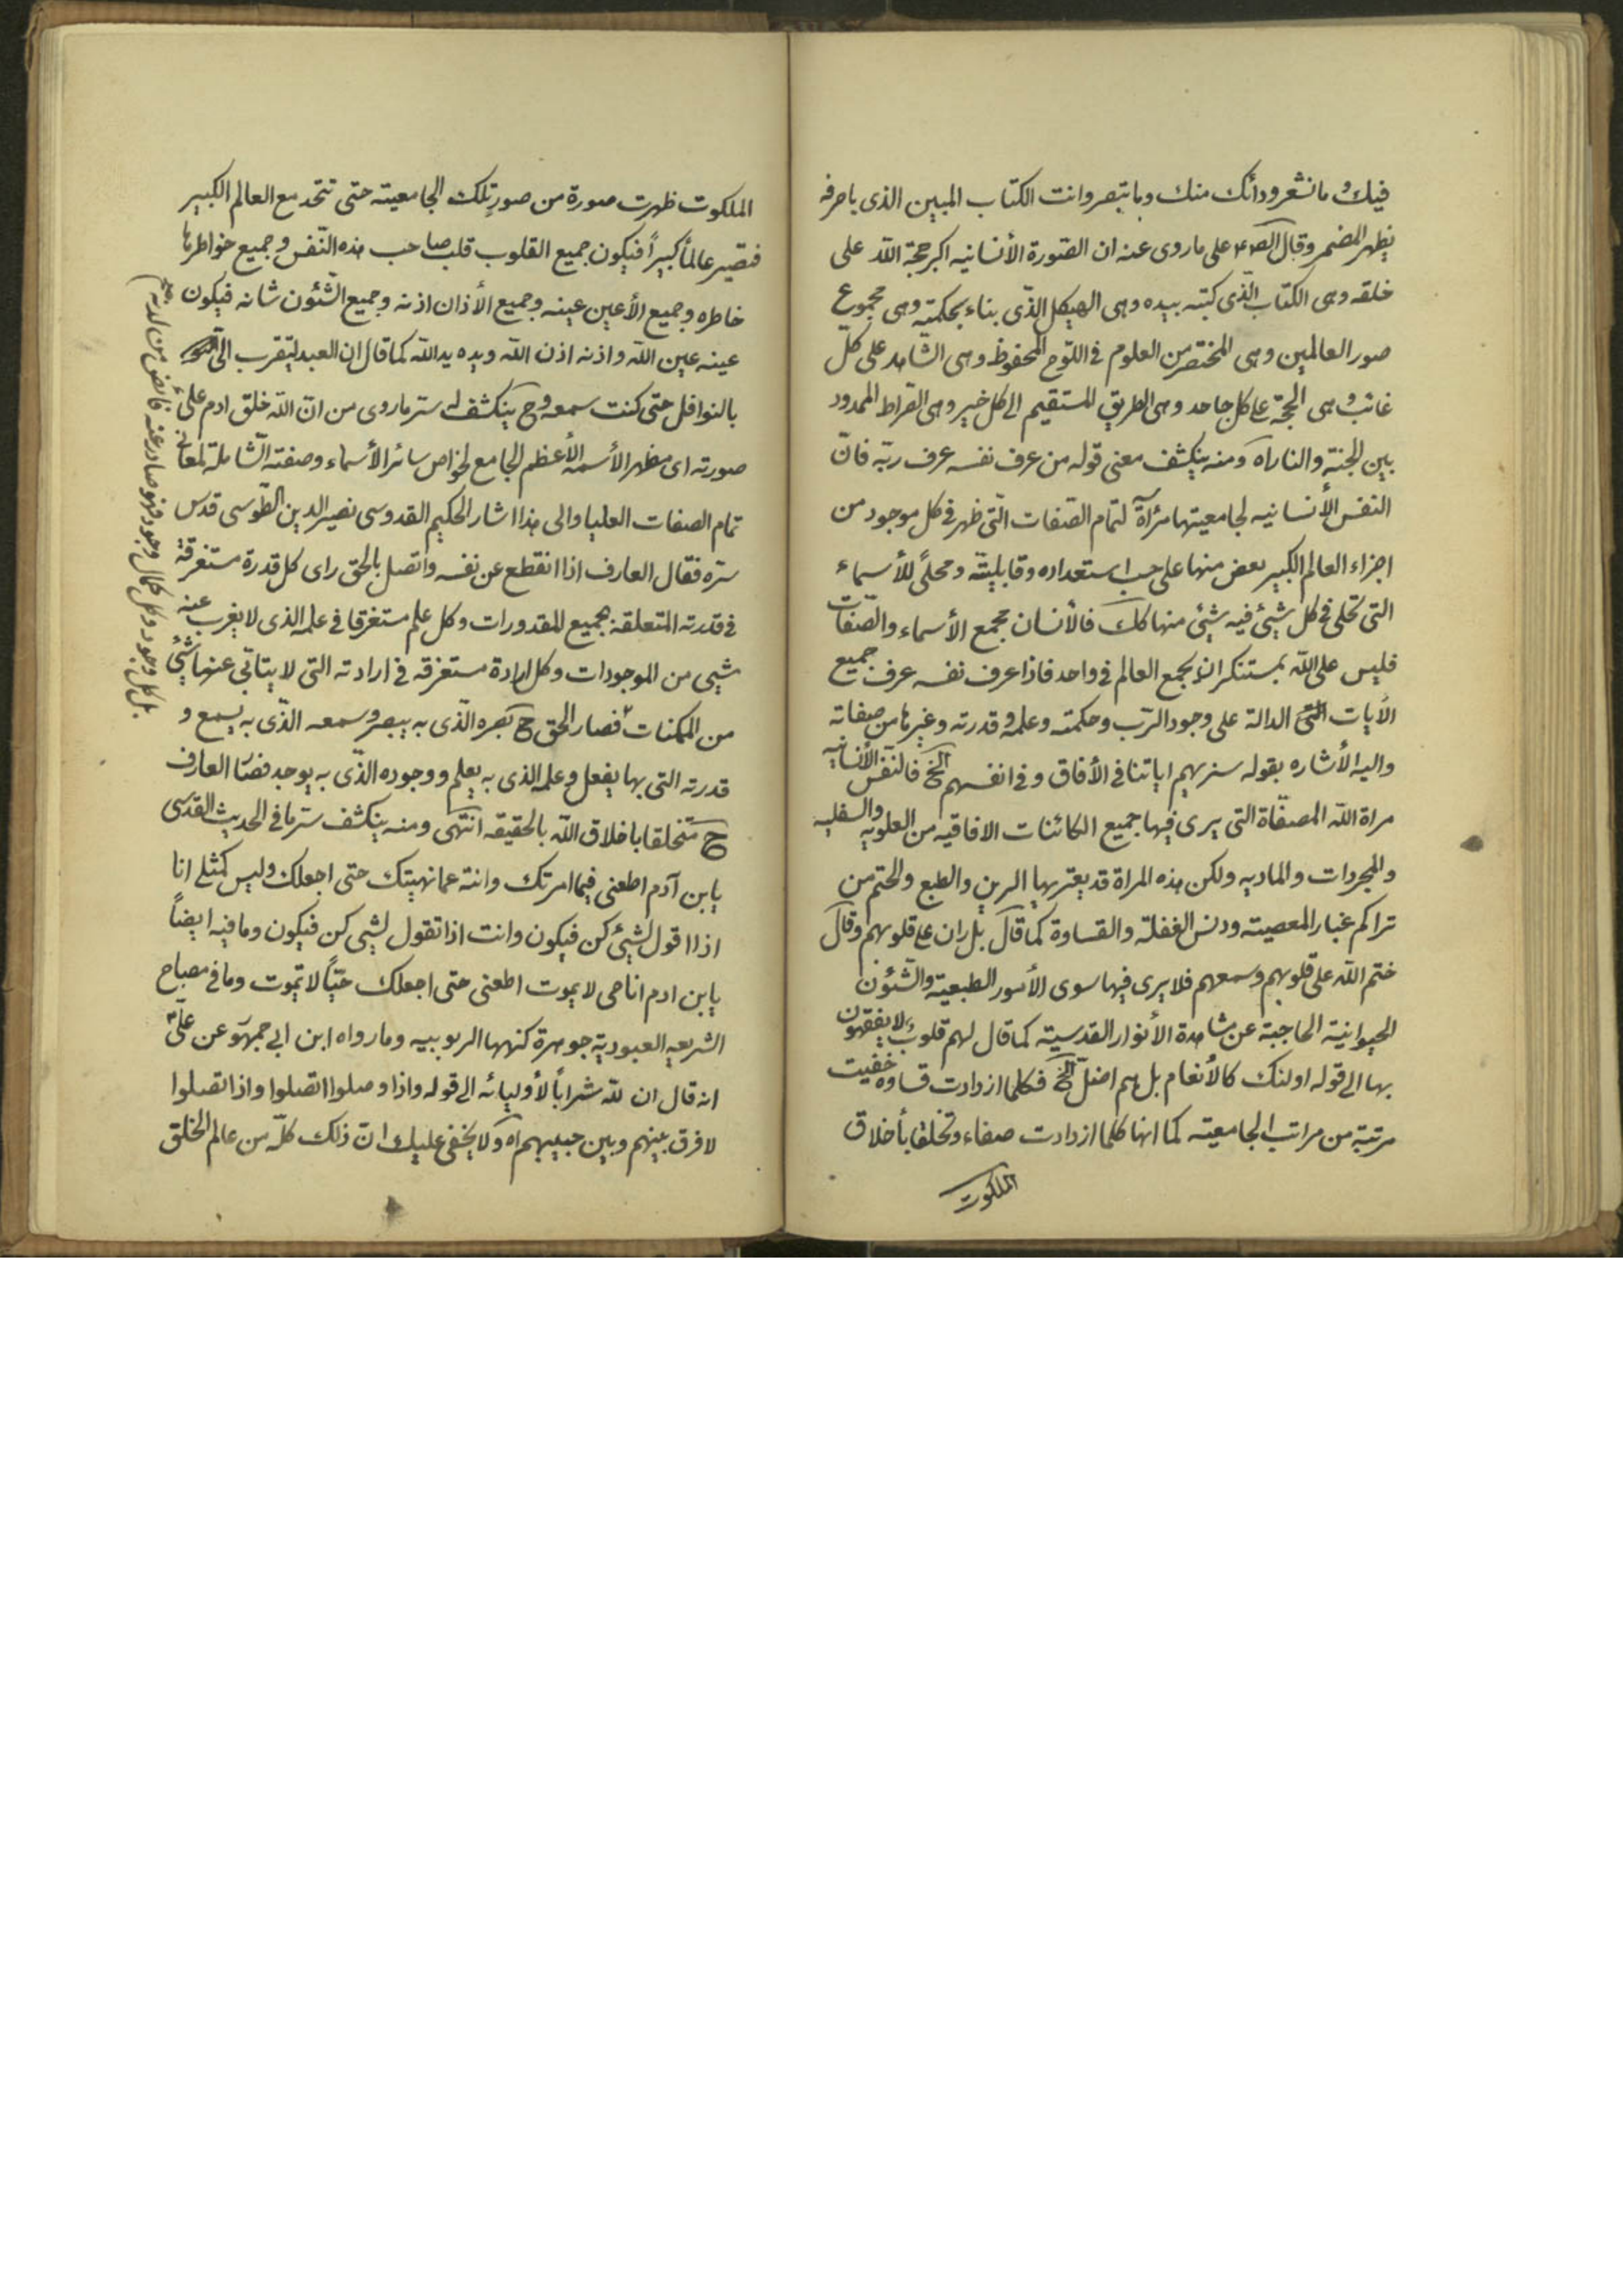 فيك وما تشعر ودائك منك وما تبصر وانت الكتاب المبين الذى باحرفه
يظهر المضمر وقال الص٤ على ما روى عنه ان الصورة الأنسانيه اكبر حجة الله على
خلقه وهى الكتاب الذى كتبه بيده وهى الهيكل الذى بناء بحكمته وهى مجموع
صور العالمين وهى المختصر من العلوم فى اللوح المحفوظ وهى الشاهد على كل
غائب وهى الحجة على كل جاحد وهى الطريق المستقيم الى كل خير وهى الصراط الممدود
بين الجنة والنار اه ومنه ينكشف معنى قوله من عرف نفسه عرف ربّه فانّ
النفس الأنسانيه لجامعيتها مرأة لتمام الصفات التى ظهر فى كل موجود من
اجزاء العالم الكبير بعض منها على حسب استعداده وقابليته ومحلىً للأسماء
التى تجلى فى كل شيئ فيه شيئ منها كك فالأنسان مجمع الأسماء والصفات
فليس على الله بمستنكر ان يجمع العالم فى واحد فاذا عرف نفسه عرف جميع
الأيات التى الدالة على وجود الرّب وحكمته وعلمه وقدرته وغيرها من صفاته
واليه الأشاره بقوله سنريهم اياتنا فى الأفاق وفى انفسهم الخ فالنفس الأنسانيه
مراة الله المصفّاة التى يرى فيها جميع الكائنات الافاقيه من العلويه والسفليه
والمجردات والماديه ولكن هذه المراة قد يعتريها الرين والطبع والختم من
تراكم غبار المعصيته ودنس الغفلة والقساوة كما قال بل ران على قلوبهم وقال
ختم الله على قلوبهم وسمعهم فلا يرى فيها سوى الأمور الطبعية والشئون
الحيوانية الحاجبة عن مشاهدة الأنوار القدسية كما قال لهم قلوب لا يفقهون
بها الى قوله اولئك كالأنعام بل هم اضلّ الخ فكلما ازدادت قساوه خفيت
مرتبة من مراتب الجامعيته كما انها كلما ازدادت صفاء وتخلقا بأخلاق
الملكوت
الملكوت ظهرت صورة من صور تلك الجامعيته حتى تتحد مع العالم الكبير
فتصير عالماً كبيراً فيكون جميع القلوب قلب صاحب هذه النفس وجميع خواطرها
خاطره وجميع الأعين عينه وجميع الأذان اذنه وجميع الشئون شانه فيكون
عينه عين الله واذنه اذن الله ويده يد الله كما قال ان العبد ليتقرب الىّ
بالنوافل حتى كنت سمعه وح ينكشف له سرّ ما روى من انّ الله خلق ادم على
صورته اى مظهر الأسمه الأعظم الجامع لخواص سائر الأسماء وصفته الشاملة لمعانى
تمام الصفات العليا والى هذا اشار الحكيم القدوسى نصير الدين الطّوسى قدس
سرّه فقال العارف اذا انقطع عن نفسه واتصل بالحق راى كل قدرة مستغرقة
فى قدرته المتعلقة بجميع المقدورات وكل علم مستغرقا فى علمه الذى لا يغرب عنه
شيى من الموجودات وكل ارادة مستغرقه فى ارادته التى لا يتاتّى عنها شيئ
من الممكنات فصار الحق ح بصره الّذى به يبصر وسمعه الّذى به يسمع و
قدرته التى بها يفعل وعلمه الذى به يعلم ووجوده الّذى به يوجد فصار العارف
ح متخلقا باخلاق الله بالحقيقه انتهى ومنه ينكشف سرّ ما فى الحديث القدسى
يابن آدم اطعنى فيما امرتك وانته عما نهيتك حتى اجعلك وليس كمثلى انا
اذا اقول لشيئ كن فيكون وانت اذا تقول لشيى كن فيكون وما فيه ايضاً
يابن ادم انا حى لا يموت اطعنى حتى اجعلك حيّاً لا تموت وما فى مصباح
الشريعه العبودية جوهرة كنهها الربوبيه وما رواه ابن ابى جمهور عن علىّ
انه قال ان لله شراباً لأوليائه الى قوله واذا وصلوا اتصلوا واذا اتصلوا
لا فرق بينهم وبين حبيبهم اه ولا يخفى عليك انّ ذلك كلّه من عالم الخلق
بل كل وجود وكل كمال وجود فهو صادر عنه فائض من لدنه